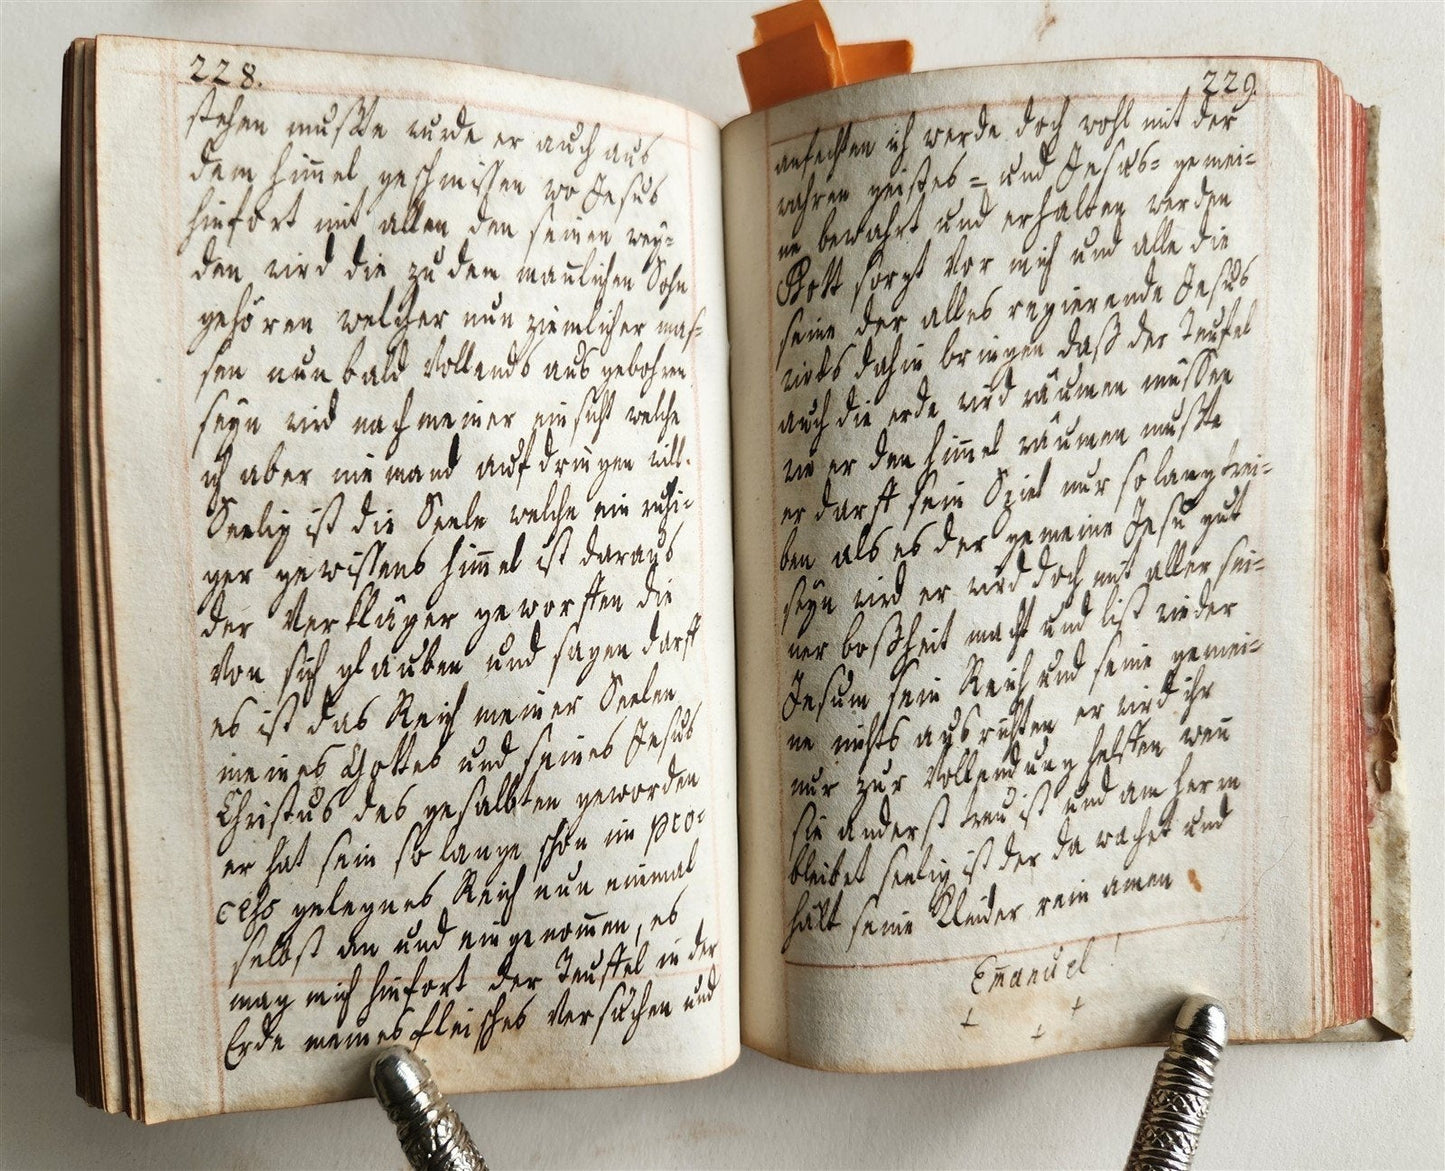 228.
stehen muste wurde er auch aus
dem himel geschmissen wo Jesus
hinfort mit allen den seinen wey=
den wird die zu dem mänlichen Sohn
gehören welcher nun ziemlicher mas=
sen nun bald Vollends aus gebohren
seyn wird nach meiner einsicht welche
ich aber niemand aufdringen will.
Seelig ist die Seele welche ein ruhi=
ger gewissens himel ist daraus
der Verkläger geworffen die
von sich glauben und sagen darff
es ist das Reich meiner Seelen
meines Gottes und seines Jesus
Christus des gesalbten geworden
er hat sein so lange schon im pro=
cess gelegnes Reich nun einmal
selbst an und eingenomen, es
mag mich hinfort der Teuffel in der
Erde meines fleisches Versuchen und
229.
anfechten ich werde doch wohl mit der
wahren geistes= und Jesus= gemei=
ne bewahrt und erhalten werden
Gott sorgt vor mich und alle die
seine der alles regierende Jesus
wirds dahin bringen daß der Teufel
auch die erde wird räumen müssen
wie er den himel räumen muste
er darff sein Spiel nur so lang trei=
ben als es der gemeine Jesu gut
seyn wird er wird doch mit aller sei=
ner boßheit macht und list wieder
Jesum sein Reich und seine gemei=
ne nichts ausrichten er wird ihr
nur zur Vollendung helffen wen
sie anderst treu ist und am herrn
bleibet seelig ist der da wachet und
hält seine Kleider rein amen
Emanuel!